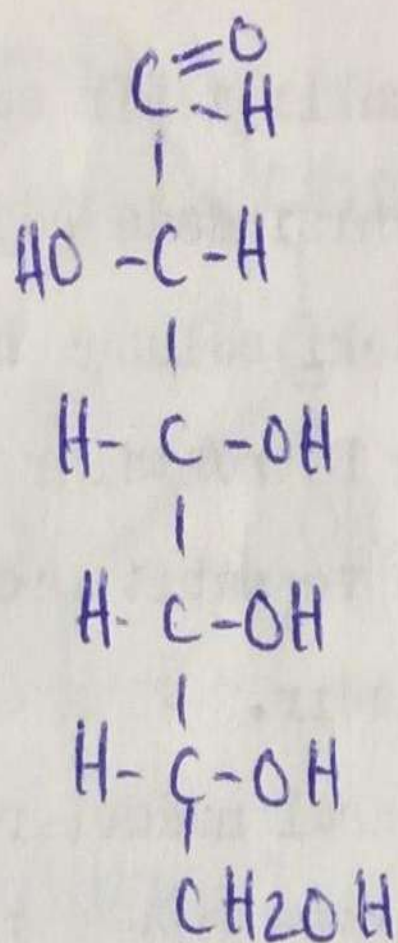 C=O
-H
HO -C-H
H- C -OH
H- C-OH
H- C-OH
CH2OH